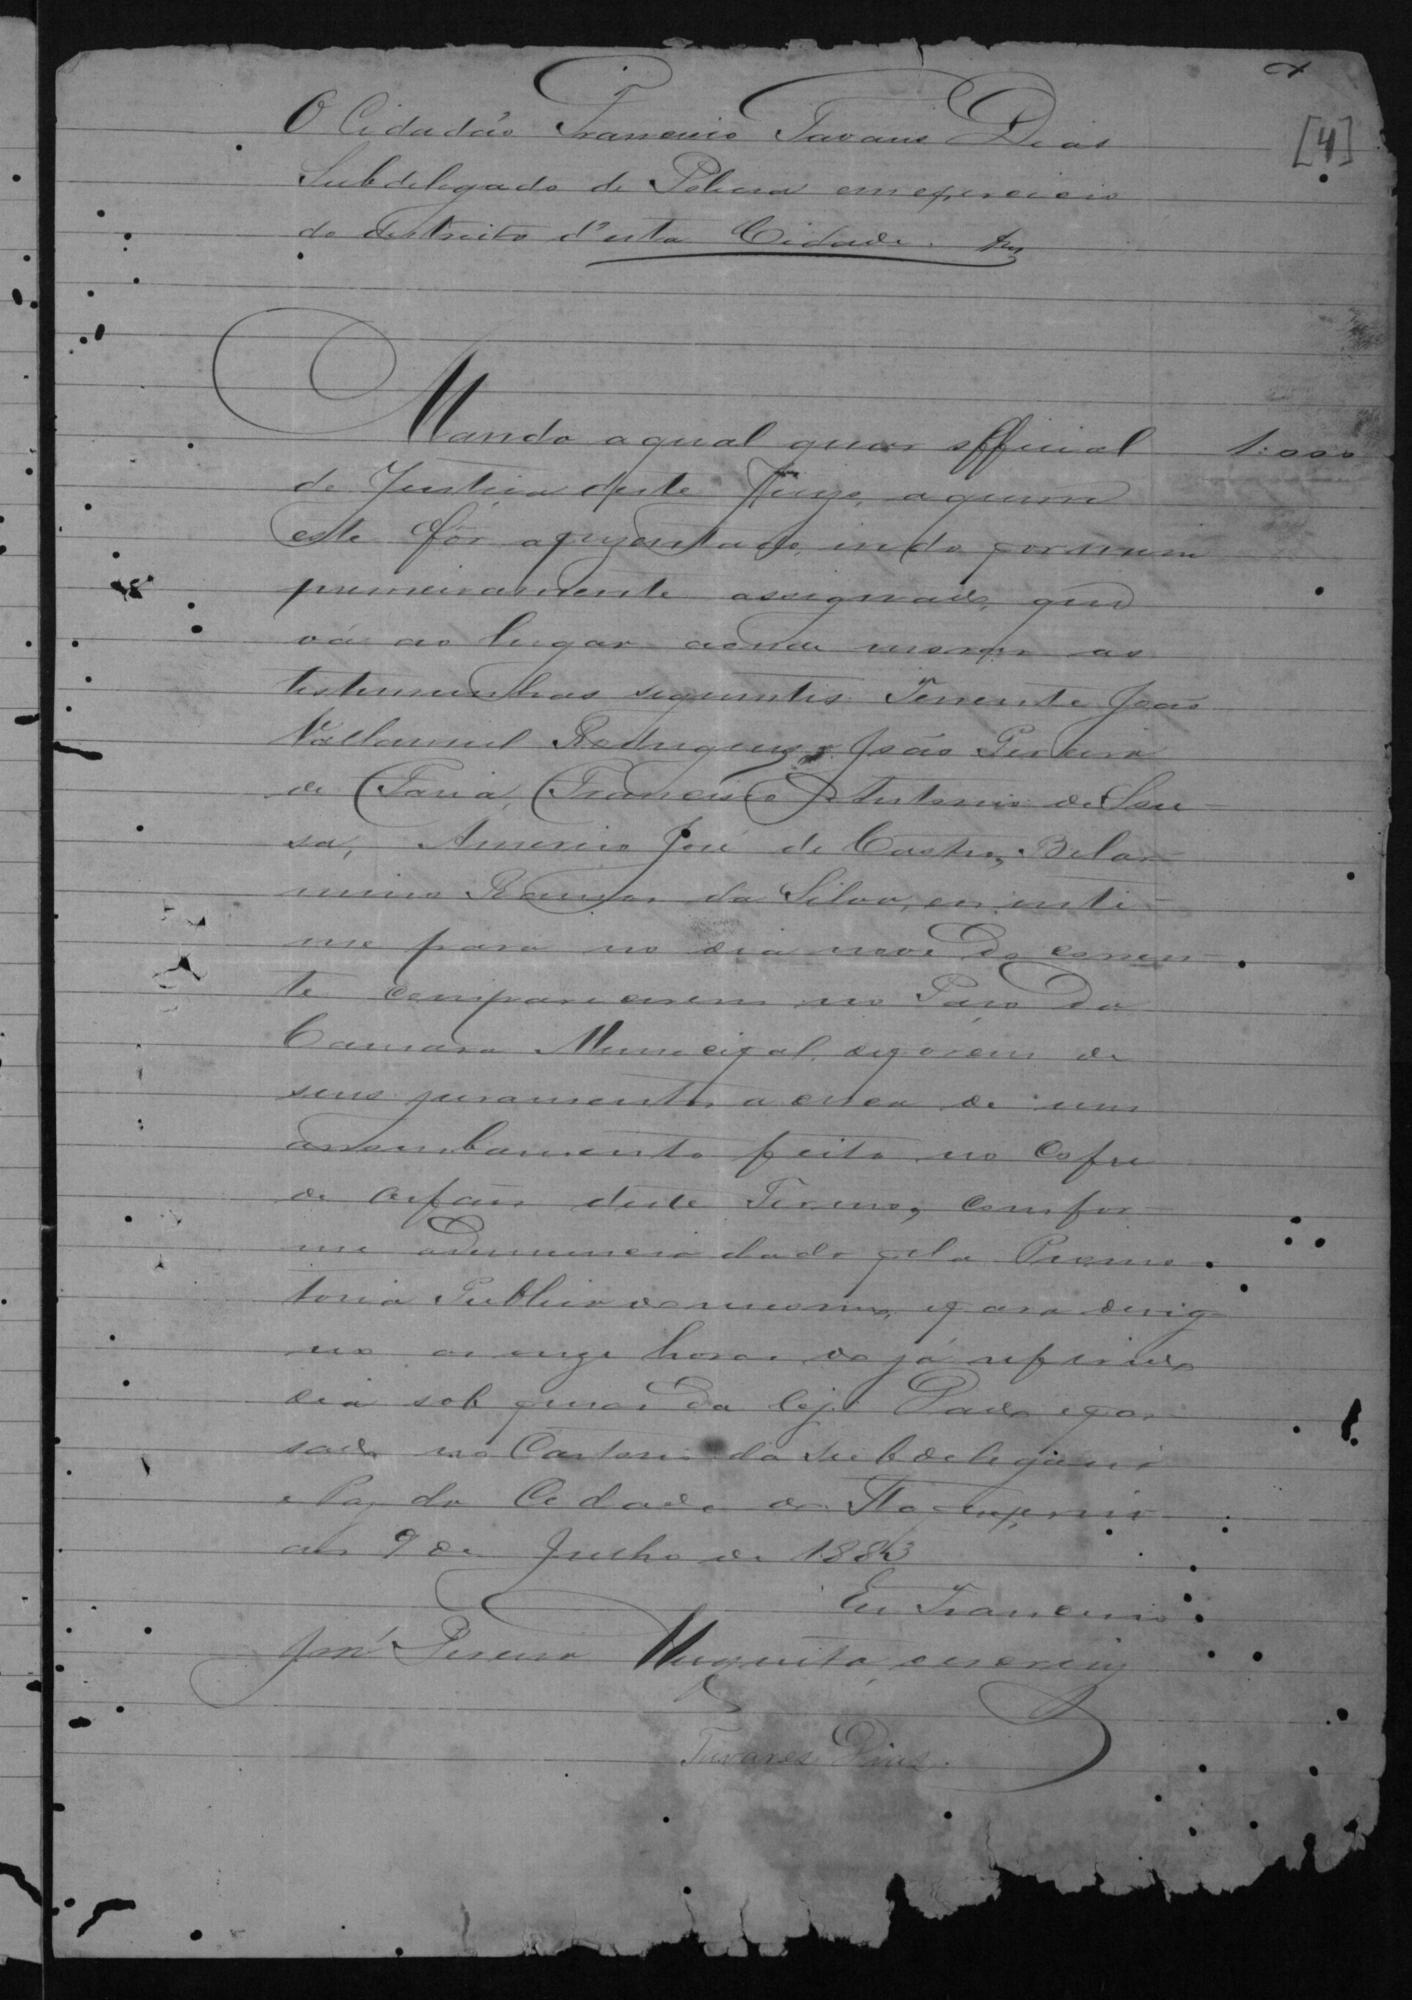 [4]
O Cidadão Francisco Tavares Dias
Subdelegado de Policia em exercicio
do destricto d'esta Cidade.
Mando a qual quer official 1:000
de Justiça deste Juizo, a quem
este fôr aprezentado, indo por mim
primeiramente assignado, que
vá ao lugar aonde morar as
testemunhas seguintes Tenente João
Rodrigues, João Pereira
de Faria, Francisco Antonio de Sou-
sa, Americo José de Castro, Belar-
mino Ramos da Silva, e os inti-
me para no dia nove do corren-
te comparecerem no Paço da
Camara Municipal, deporem de
seus juramentos a cerca de um
arrombamento feito no Cofre
de Orfãos deste Termo, confor-
me a denuncia dada pela Promo-
toria Publica do mesmo, e para
as onze horas do já referido
dia sob penas da lei. Dado e pas-
sado no Cartorio da Subdelegacia
e Paz da Cidade de
aos 9 de Julho de 1883
Eu Francisco
José Pereira Mesquita, escrivão
Tavares Dias.